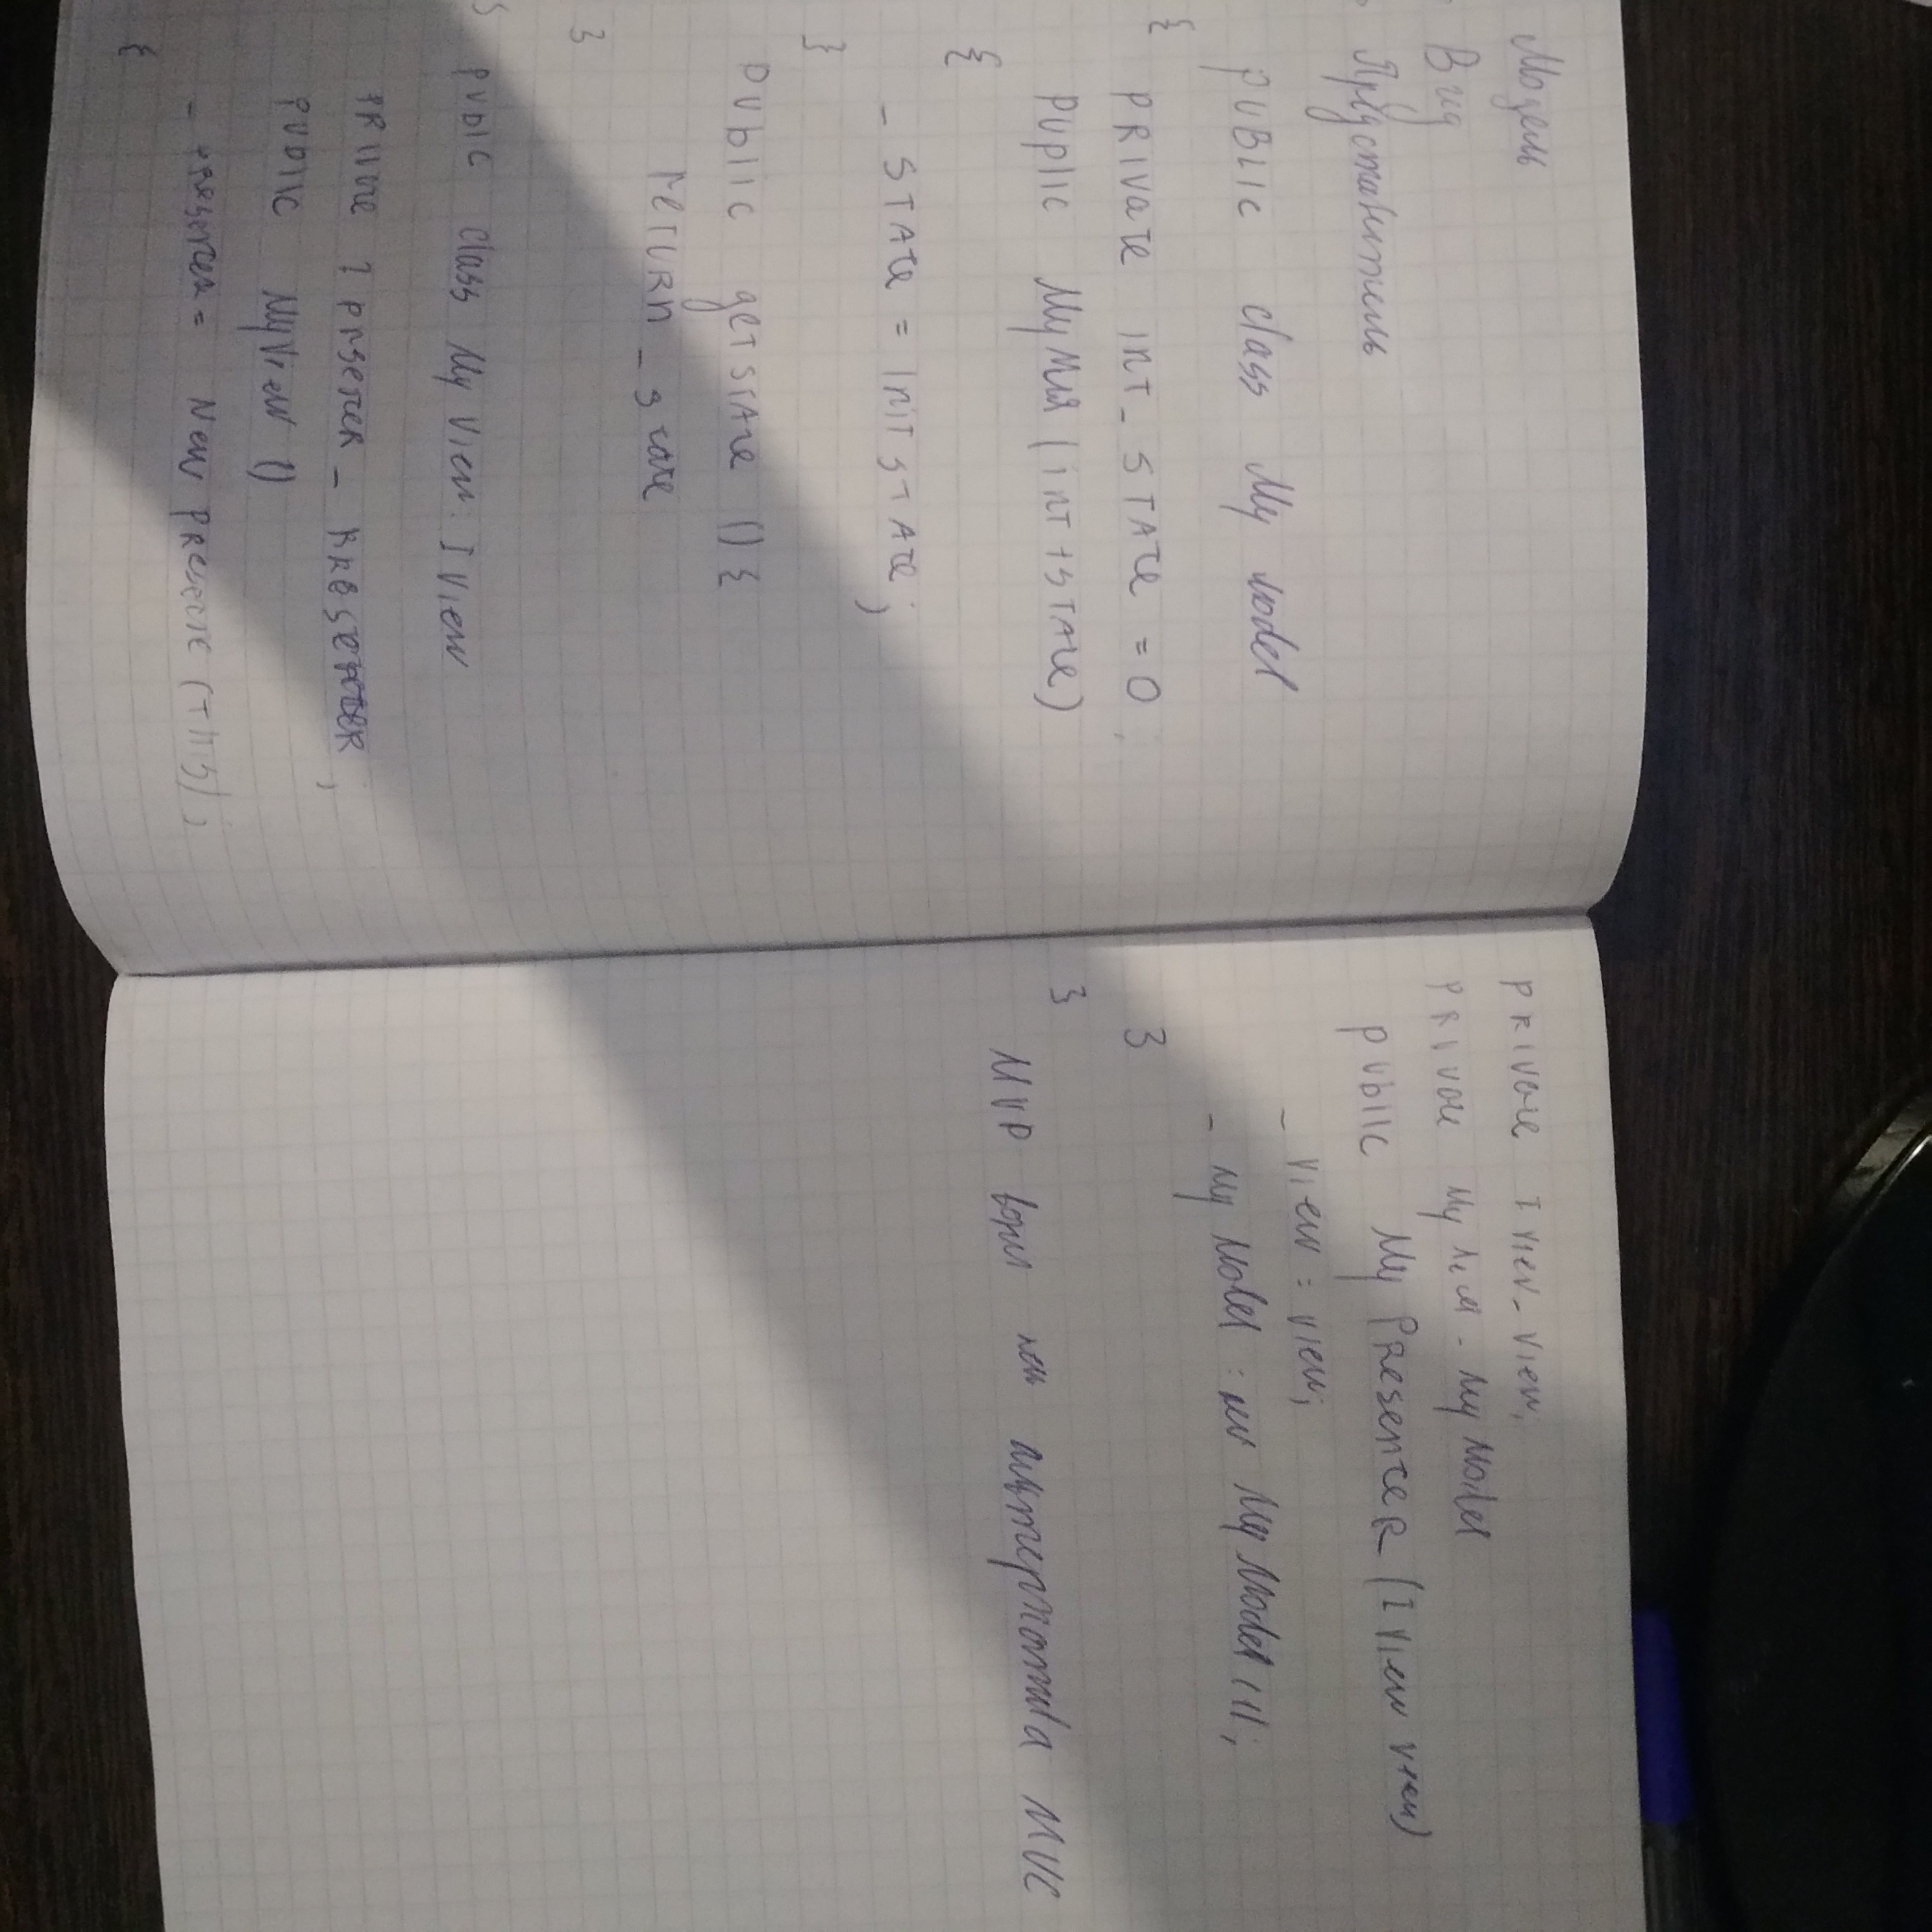 Модель
Вид
Представитель
PUBLIC class My Model
{
PRIVATE INT_STATE = 0,
PUPLIC (INT+STATE)
{
_ STATE = INITSTATE;
}
PUBLIC getSTATE () {
RETURN _ STATE
}
PUBLIC class My View: IView
PRIVATE I PRSETER _ ;
PUBLIC MyView ()
_ PRESENTER = New (THIS);
{
PRIVATE I View_ View;
PRIVATE _ My Model
PUBLIC My PRESENTER (I View View)
_ View = View;
_ My Model = new My Model (1);
}
}
MVP альтернатива MVC